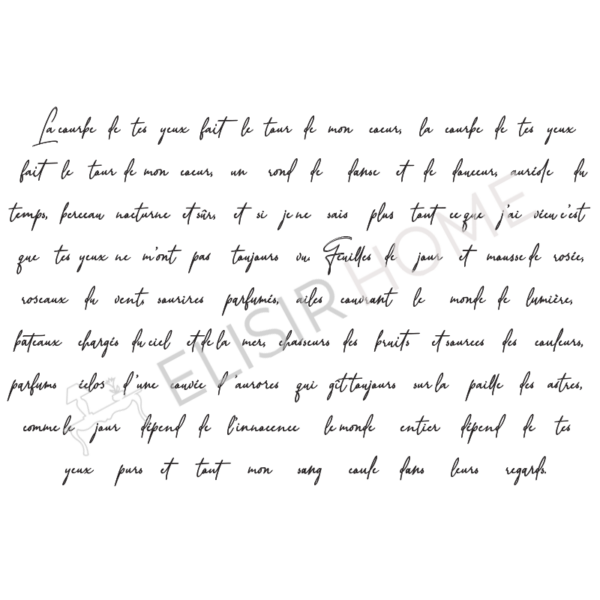 La courbe de tes yeux fait le tour de mon coeur, la courbe de tes yeux
fait le tour de mon coeur, un rond de danse et de douceur, auréole du
temps, berceau nocturne et sûr, et si je ne sais plus tout ce que j'ai vécu c'est
que tes yeux ne m'ont pas toujours vu. Feuilles de jour et mousse de rosée,
roseaux du vent, sourires parfumés, ailes couvrant le monde de lumière,
bateaux chargés du ciel et de la mer, chasseurs des bruits et sources des couleurs,
parfums éclos d'une couvée d'aurores qui gît toujours sur la paille des astres,
comme le jour dépend de l'innocence le monde entier dépend de tes
yeux purs et tout mon sang coule dans leurs regards.
ELISIR HOME